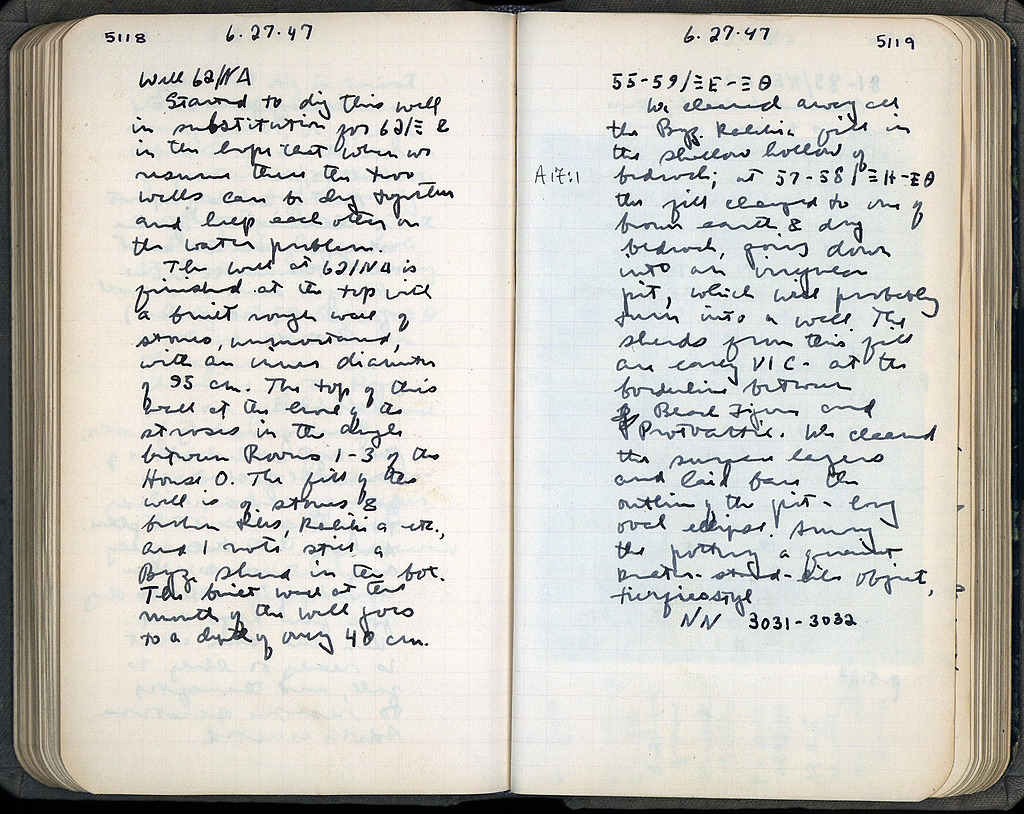 5118
6.27.47
Well 62/ΝΑ
Started to dig this well
in substitution for 62/Ξ
in the hope that when we
resume there the two
wells can be dug together
and help each other on
the water problem.
The well at 62/ΝΑ is
finished at the top with
a built rough wall of
stones, unmortared,
with an inner diameter
of 95 cm. The top of this
wall at the level of the
stroses in the angle
between Rooms 1-3 of the
House O. The fill of the
well is of stones &
broken tiles, Kalibia etc.,
and I note still a
Byz. sherd in the bot.
The built wall at the
mouth of the well goes
to a depth of only 40 cm.
6.27.47
5119
55-59/ΞΕ-ΞΘ
We cleared away all
the Byz. Kalibia fill in
the shallow hollow of
A17:1
bedrock; at 57-58/ΞΗ-ΞΘ
the fill changed to one of
brown earth & dug
bedrock, going down
into an irregular
pit, which will probably
turn into a well. The
sherds from this fill
are early VI C - at the
borderline between
Black Figure and
Protoattic. We cleared
the surface layers
and laid bare the
outline of the pit - long
oval ellipse. Among
the pottery a quaint
stand-like object,
ΝΝ 3031-3032